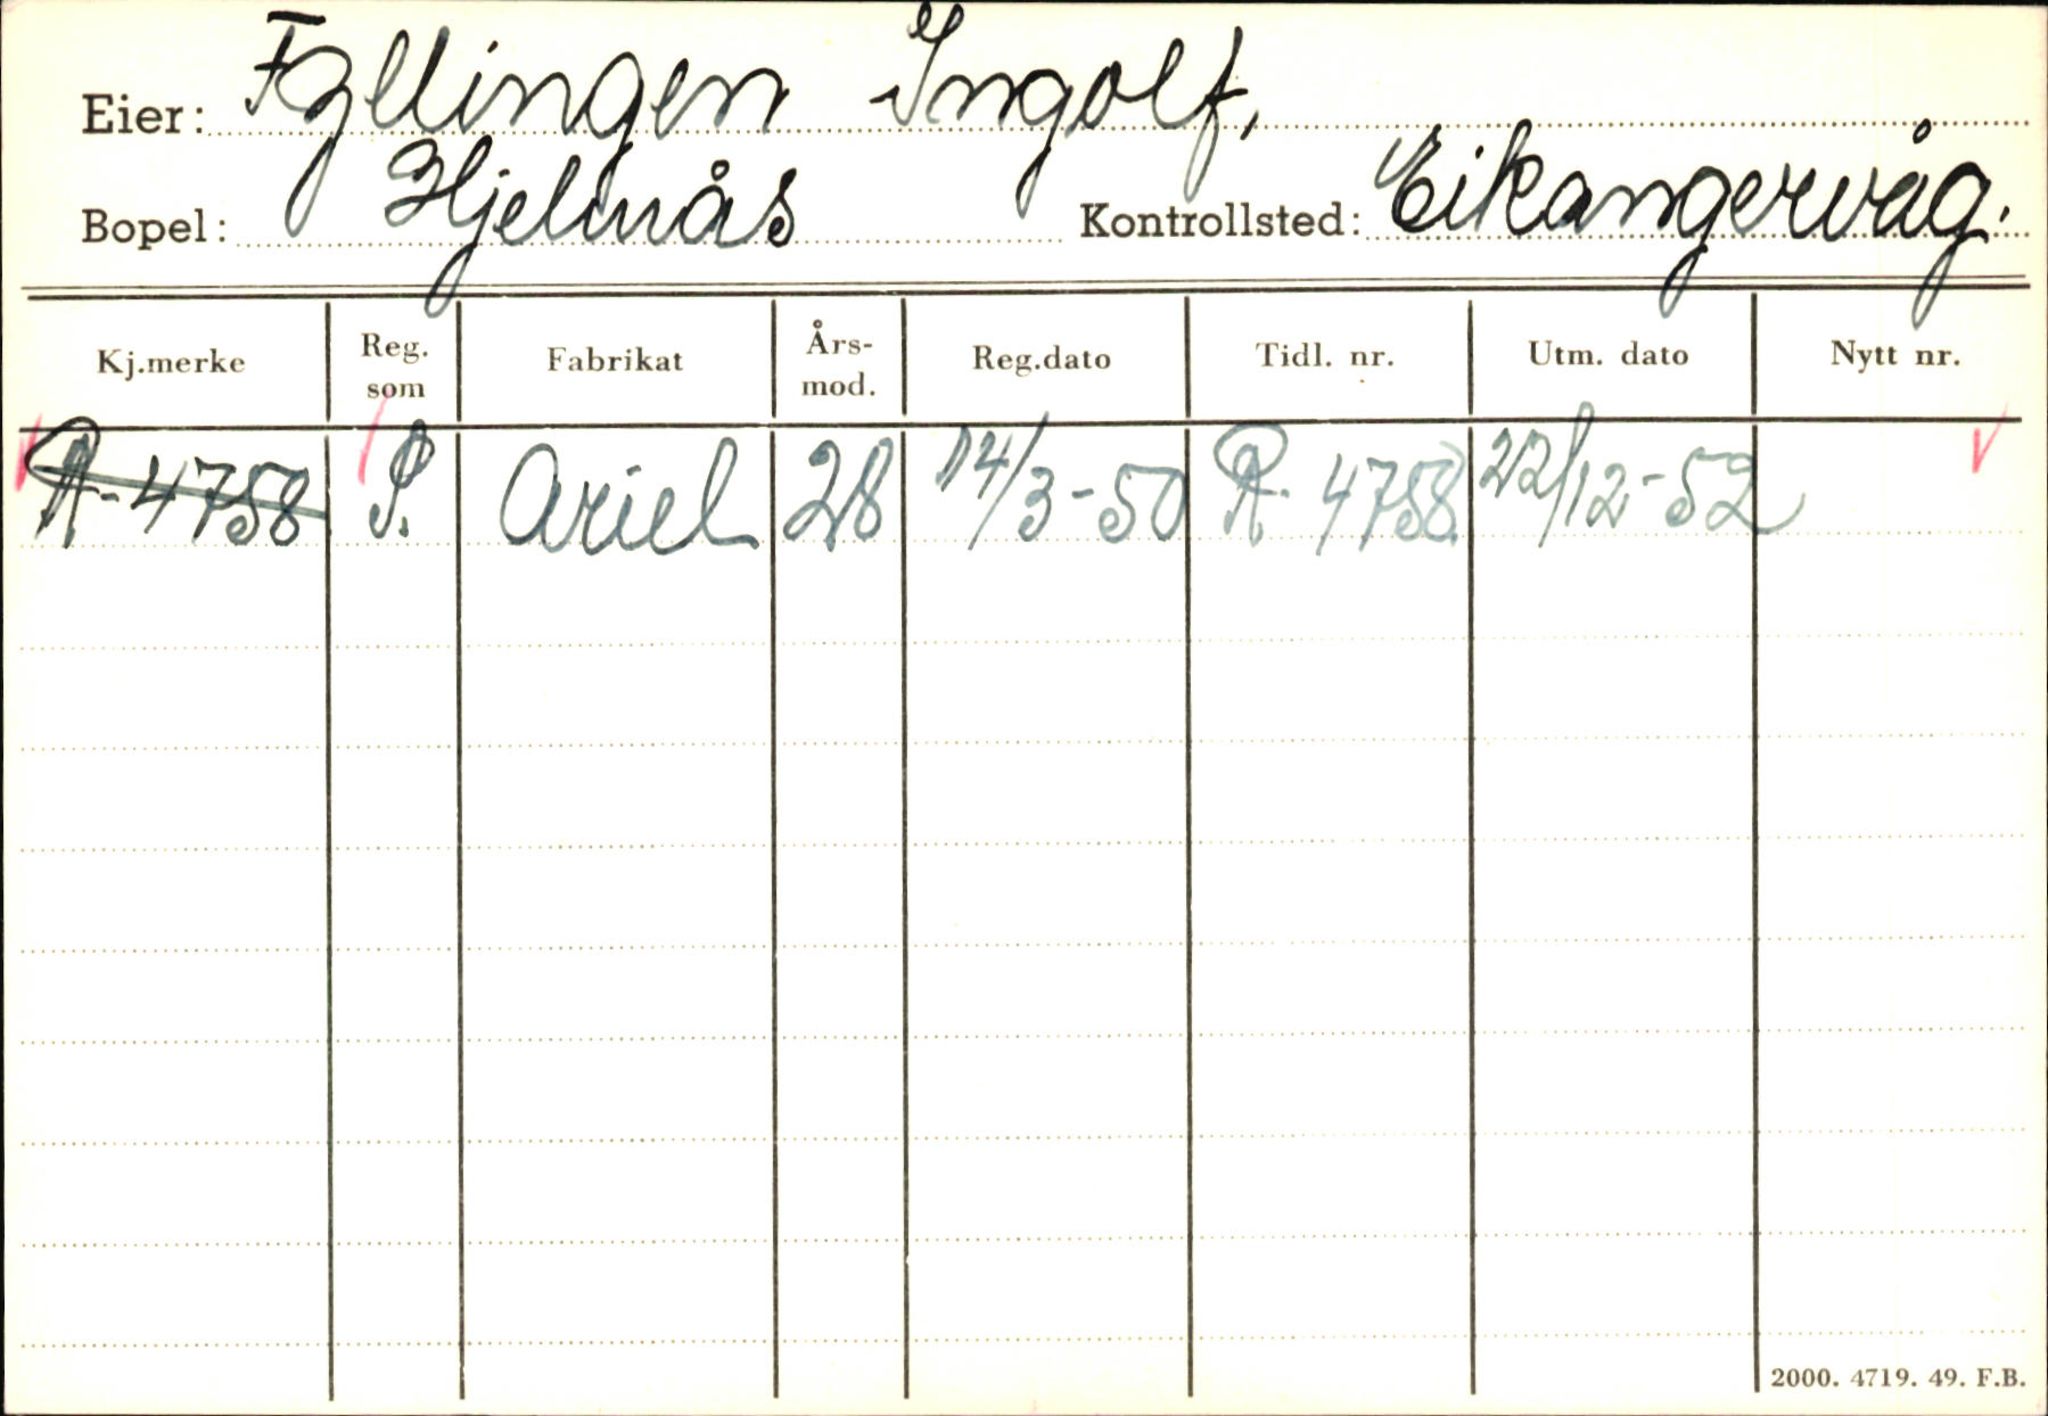 Eier: Fyllingen Ingolf,
Bopel: Hjelmås Kontrollsted: Eikangervåg.
Kj.merke Reg. som Fabrikat Års- mod. Reg.dato Tidl. nr. Utm. dato Nytt nr.
R-4758 P. Ariel 28 14/3-50 R-4758 22/12-52
2000. 4719. 49. F.B.